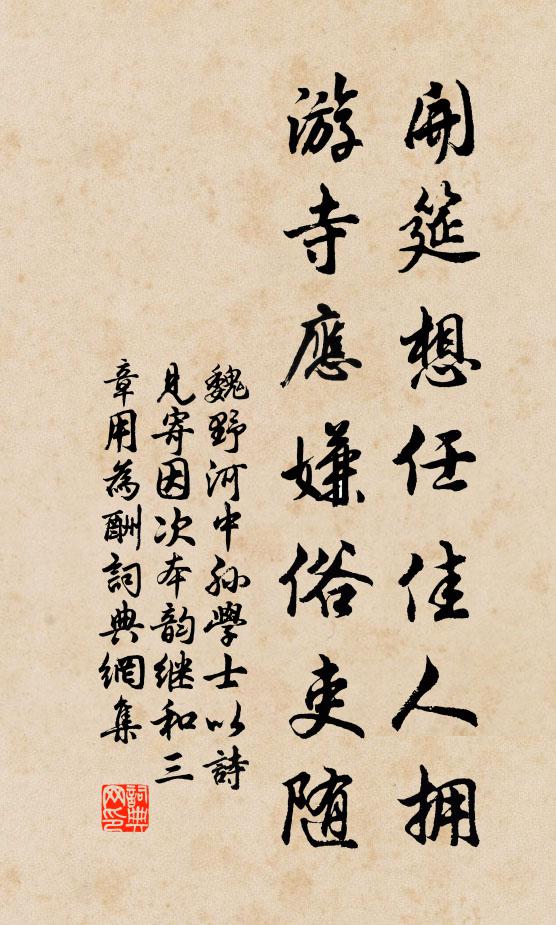 開筵想任佳人拥
游寺應嫌俗吏随
魏野河中孙學士以詩
見寄因次本韵继和三
章用為酬詞典網集
詞典网印